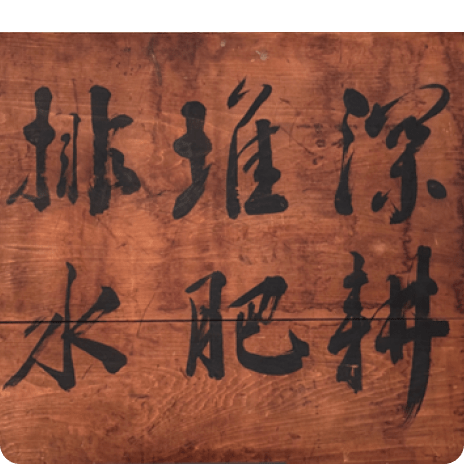 深耕
堆肥
排水